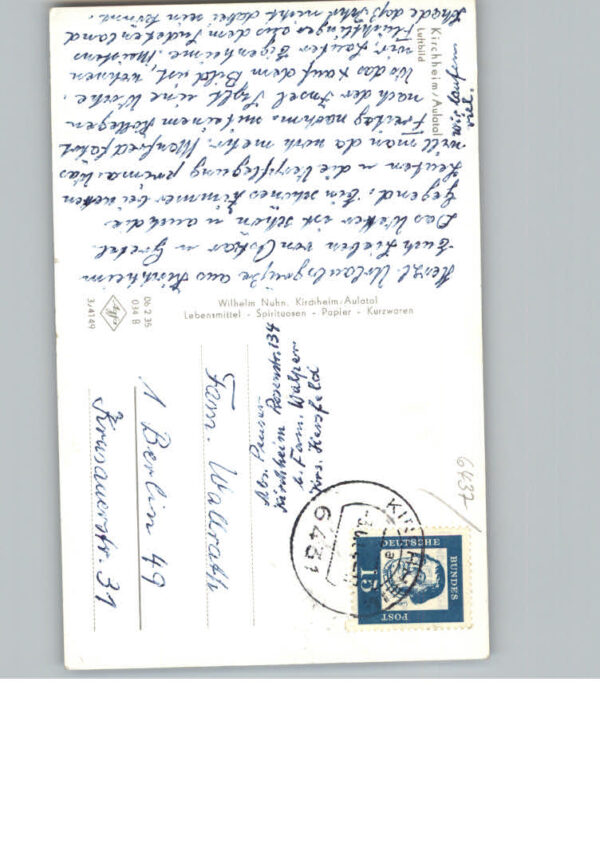 Kirchheim/Aulatal
Luftbild
wir laufen
viel.
Herzl. Urlaubsgrüße aus Kirchheim
Euch Lieben von Oskar u Gretel.
Das Wetter ist schön u auch die
Gegend. Ein schönes Zimmer bei netten
Leuten u die Verpflegung prima was
will man da noch mehr. Manfred fährt
Freitag nachm. mit seinen Kollegen
nach der Insel Sylt eine Woche.
Wo das x auf dem Bild ist, wohnen
wir. Lauter Eigenheime. Meistens
Flüchtlinge aus dem Sudetenland
Schade daß Ihr nicht dabei sein könnt.
Wilhelm Nuhn, Kirchheim-Aulatal
Lebensmittel - Spirituosen - Papier - Kurzwaren
Agfa
06 2 35
034 B
3/4149
Abs. Pauser
Kirchheim Rosenstr. 134
b. Fam. Walper
Krs. Hersfeld
Fam. Wallrath
1 Berlin 49
Krusauerstr. 31
6437
6431
DEUTSCHE
BUNDES
POST
15